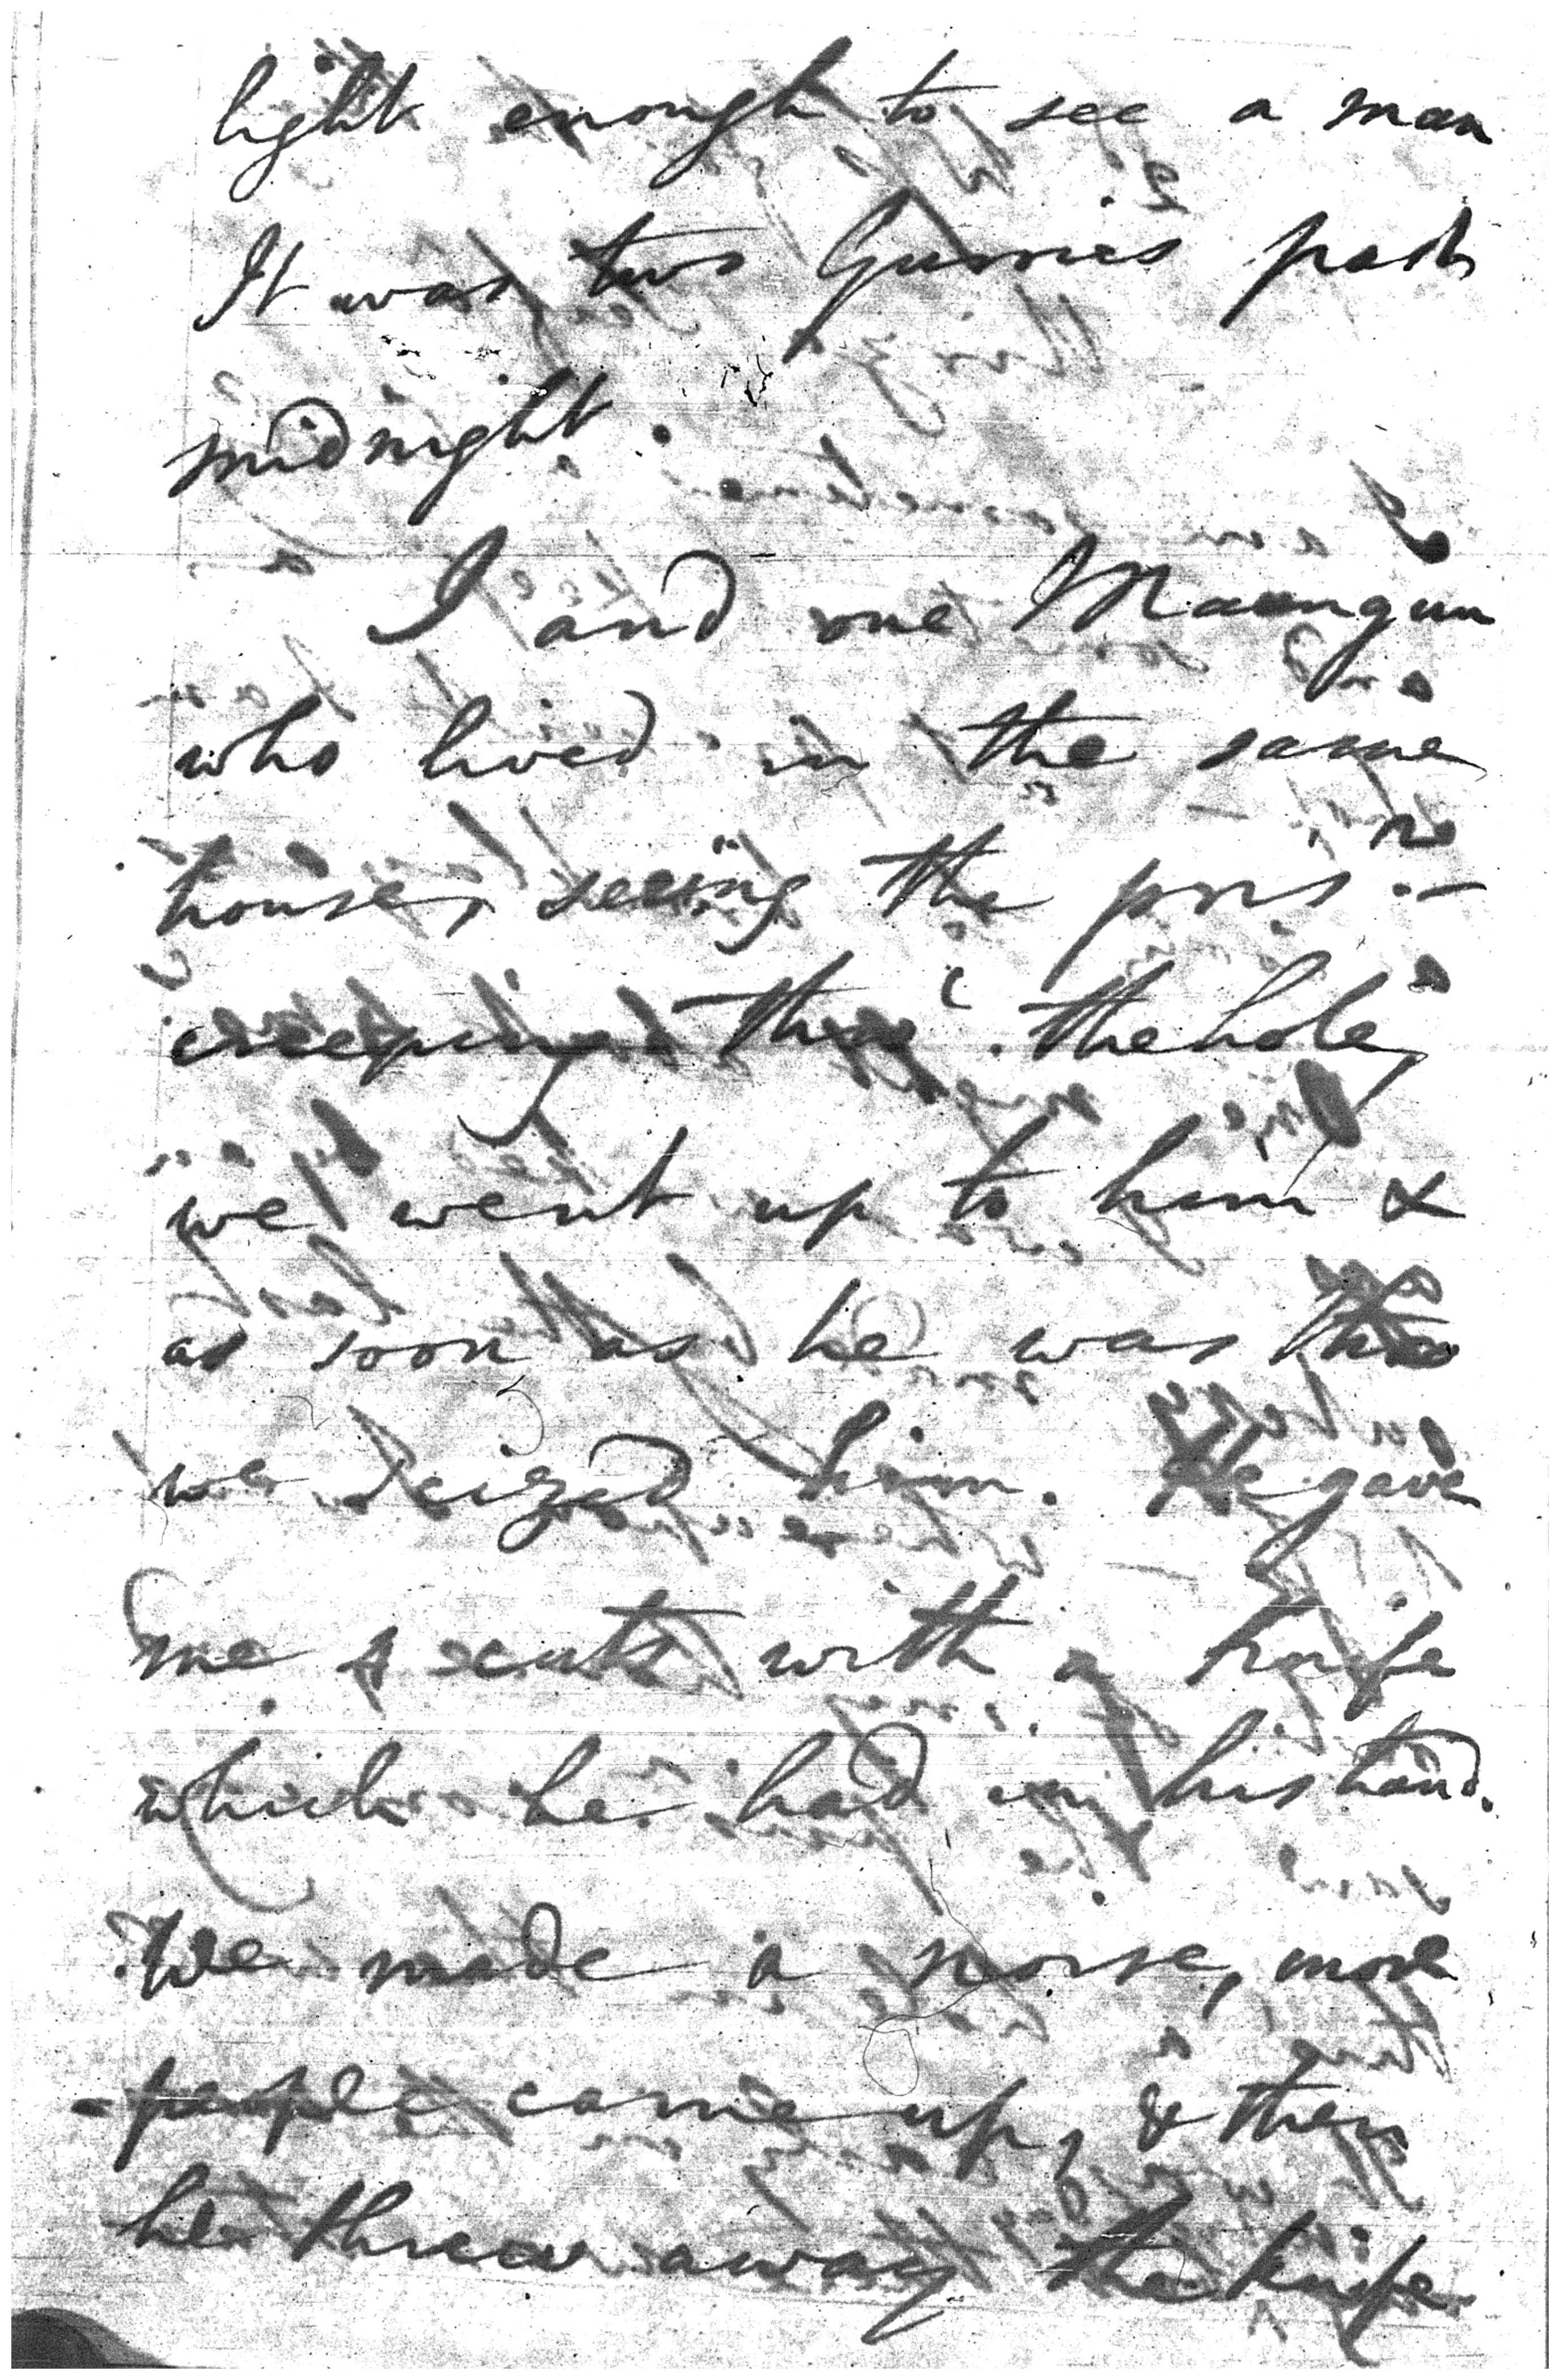 light enough to see a man
It was two Gurries past
midnight.
I and one Maungun
who lived in the same
house, seeing the prisr
creeping thro' the hole,
we went up to him &
as soon as he was thro
we seized him. He gave
me cuts with a knife
which he had in his hand.
We made a noise, more
people came up, & then
he threw away the knife.